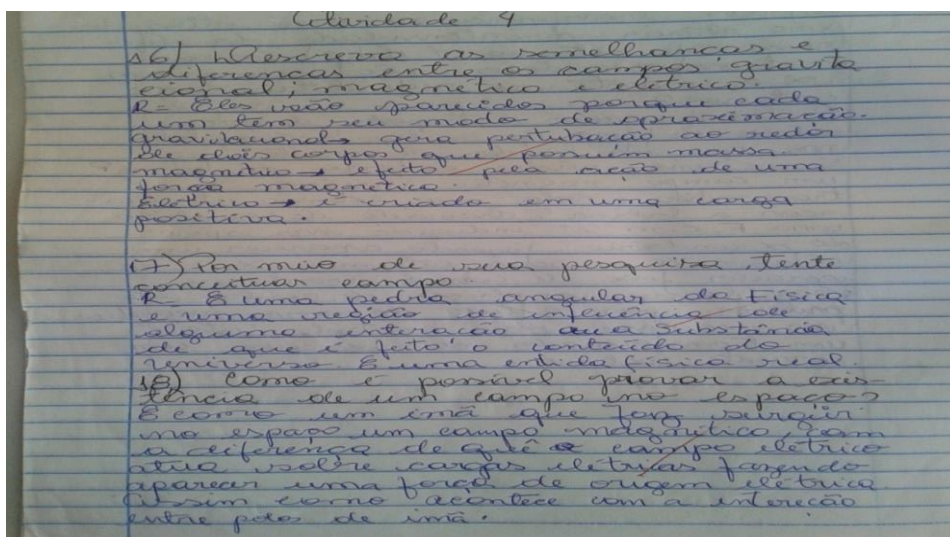 Atividade 4
16) Descreva as semelhanças e
diferenças entre os campos gravita
cional, magnético e elétrico.
R- Eles são parecidos porque cada
um tem seu modo de aproximação.
gravitacional→ gera pertubação ao redor
de dois corpos que possuim massa
magnétio→ efeito pela ação de uma
força magnética.
Elétrico→ é criado em uma carga
positiva.
17) Por meio de sua pesquisa, tente
conceituar campo
R- É uma pedra angular da Física
e uma região de influência de
alguma interação que a Substância
de que é feito o conteúdo do
universo. É uma entida física real.
18) Como é possível provar a exis-
tência de um campo no espaço?
É como um imã que faz surgir
no espaço um campo magnético, com
a diferença de quê o campo elétrico
atua sobre cargas elétricas fazendo
aparecer uma força de origem elétrica
assim como acontece com a intereção
entre polos de imã.